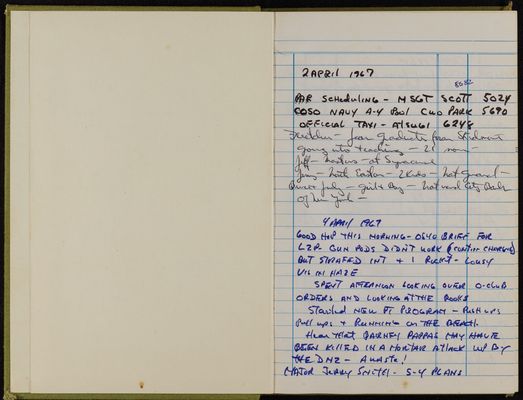 2 APRIL 1967
PAR Scheduling - MSGT SCOTT 5024
COSO NAVY A-4 Pool CWO PARK 5690
OFFICIAL TAXI - ATSUGI 6248
- four graduate from Skidmore
going into teaching - 21 now -
Jeff - Masters - at Syracuse
Jim - North Easton - 2 Kids - Nat Guard -
July - girl & Boy - National City Bank
of New York -
4 APRIL 1967
GOOD HOP THIS MORNING - 0540 BRIEF FOR
LZP. GUN PODS DIDN'T WORK
BUT STRAFED INT + 1 ROCKET - LOUSY
VIS IN HAZE
SPENT AFTERNOON LOOKING OVER O-CLUB
ORDERS AND LOOKING AT THE BOOKS
Started NEW PT PROGRAM - PUSH UPS
PULL UPS + RUNNING ON THE BEACH.
Hear that BARNEY PAPPAS MAY HAVE
BEEN KILLED IN A MORTAR ATTACK UP BY
THE DMZ - A WASTE!
MAJOR JERRY SMITH - S-4 PLANS